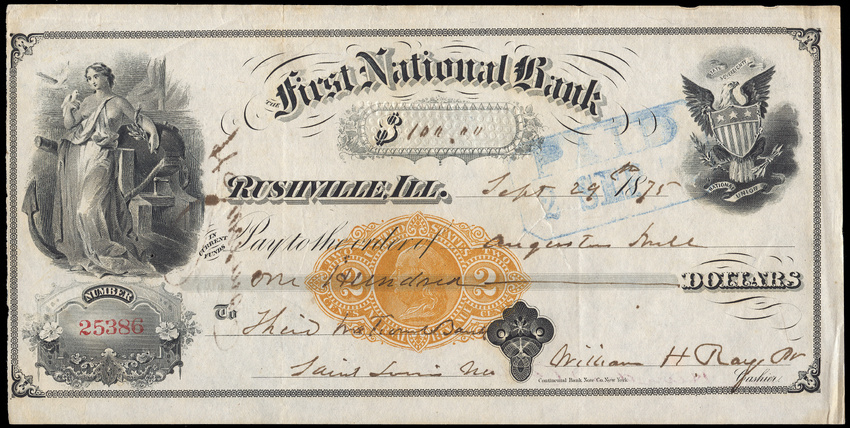 THE First National Bank
$ 100.00
PAID
RUSHVILLE, ILL. Sept 29th 1875
IN CURRENT FUNDS
Pay to the order of Augustus
One Hundred DOLLARS
2 2
NUMBER
25386
To Third National Bank
Saint Louis Mo
William H Ray
Cashier
Continental Bank Note Co. New York
STATE SOVEREIGNTY
NATIONAL UNION